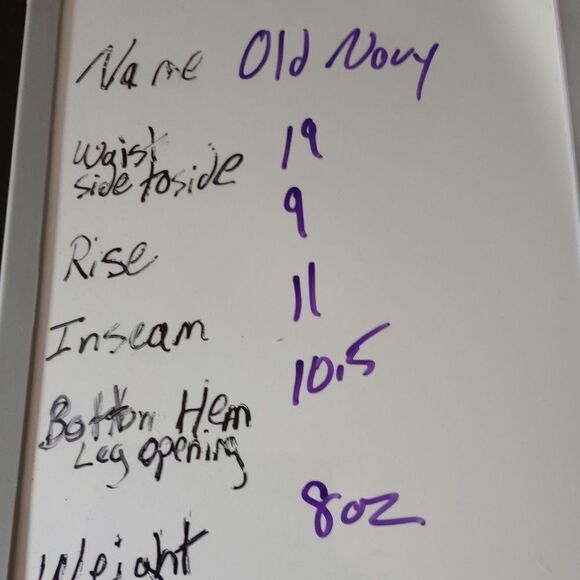 Name Old Navy
Waist 19
side to side
Rise 9
Inseam 11
Bottom Hem 10.5
Leg opening
Weight 8oz